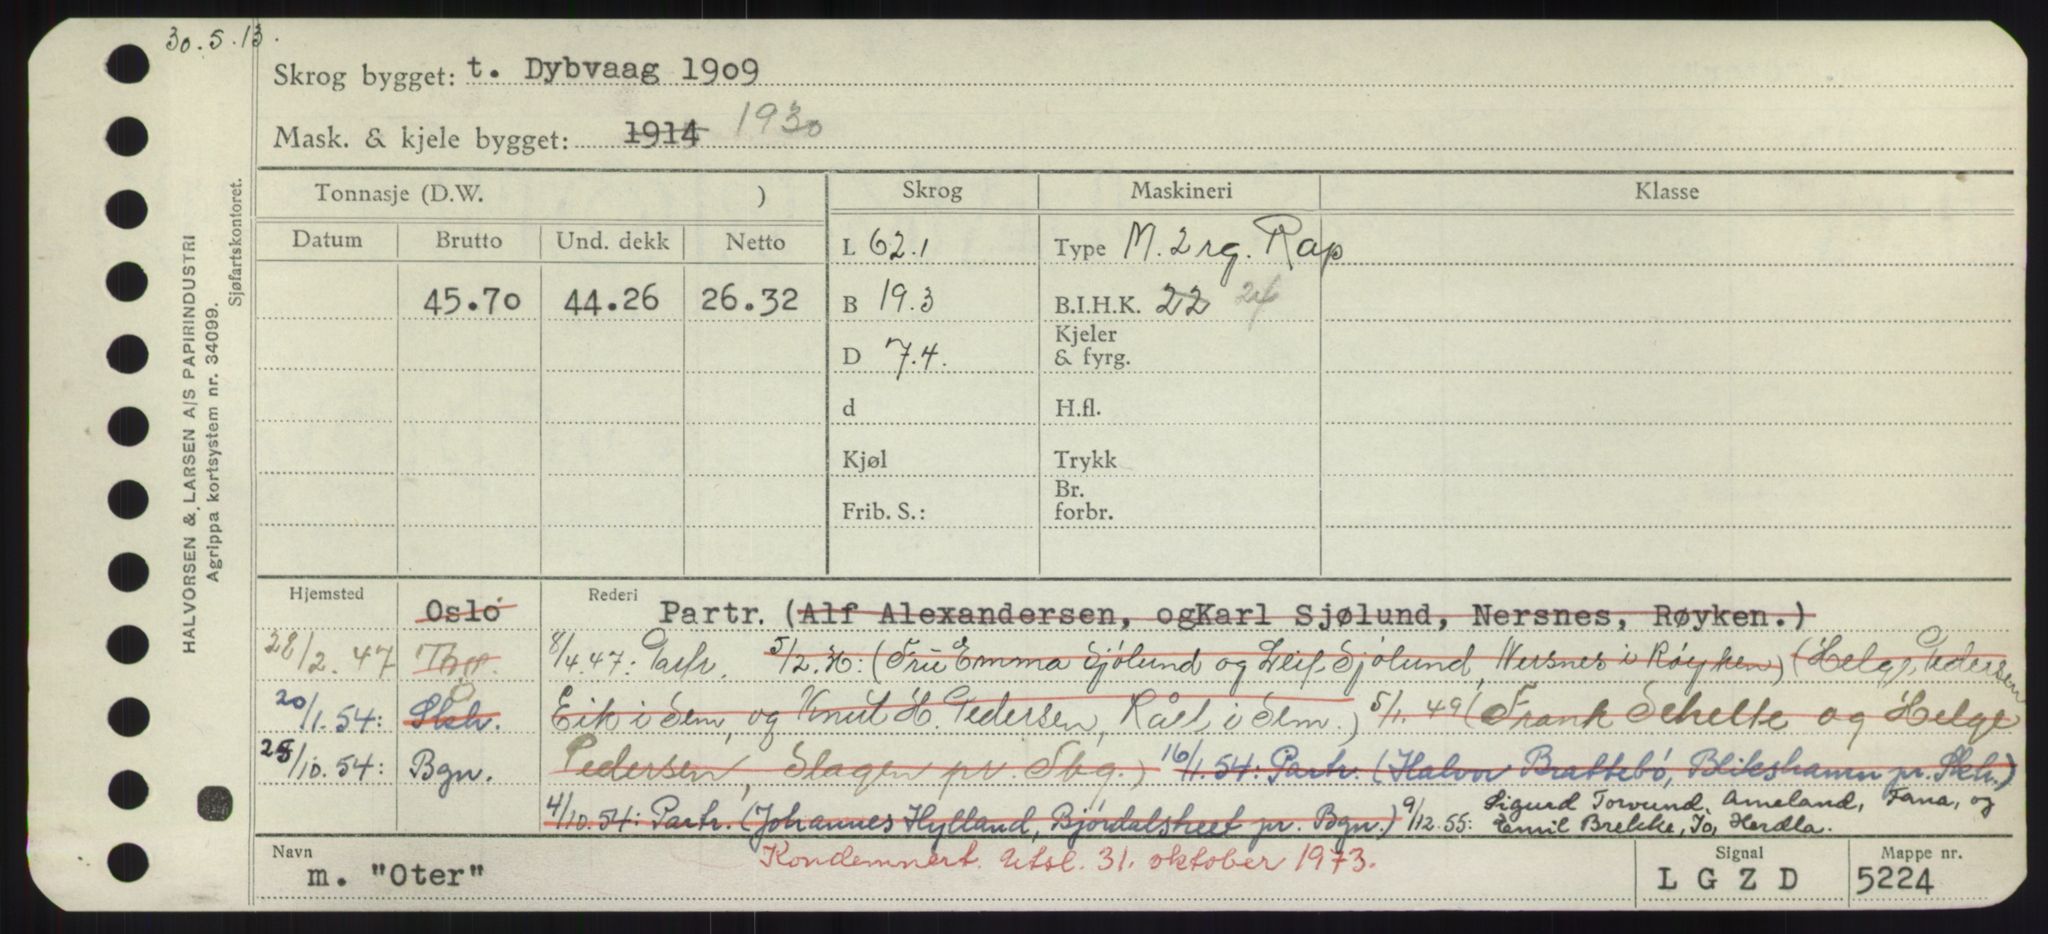 30.5.13.
Skrog bygget: t. Dybvaag 1909
Mask. & kjele bygget: 1914 1930
Tonnasje (D.W. )
Skrog
Maskineri
Klasse
Datum Brutto Und. dekk Netto
45.70 44.26 26.32
L 62.1
B 19.3
D 7.4.
d
Kjøl
Frib. S.:
Type M. 2 rg. Rap
B.I.H.K. 22 24
Kjeler
& fyrg.
H.fl.
Trykk
Br.
forbr.
Hjemsted Oslo Rederi Partr. (Alf Alexandersen, ogKarl Sjølund, Nersnes, Røyken.)
28/2.47 8/4.47: Partr. 5/2. (Fru Emma Sjölund og Leif Sjölund, Nersnes i Röyken) (Helge Pedersen
20/1.54: Skh. Eik i Sem, og Knut H. Pedersen, Råel i Sem.) 5/1.49 (Frank Schelte og Helge
25/10.54: Bgn. Pedersen, Slagen pr. Tbg.) 16/1.54: Partr. (Halvor Brattebö, Blikshamn pr. Skh.)
4/10.54: Partr. (Johannes Hylland, Bjórdalstreet pr. Bgn.) 9/12.55: Sigurd Torvund, Ameland, Fana, og
Emil Brekke, Io, Herdla.
Navn m. "Oter"
Kondemnert. Utsl. 31. oktober 1973.
Signal L G Z D
Mappe nr. 5224
HALVORSEN & LARSEN A/S PAPIRINDUSTRI
Agrippa kortsystem nr. 34099.
Sjøfartskontoret.